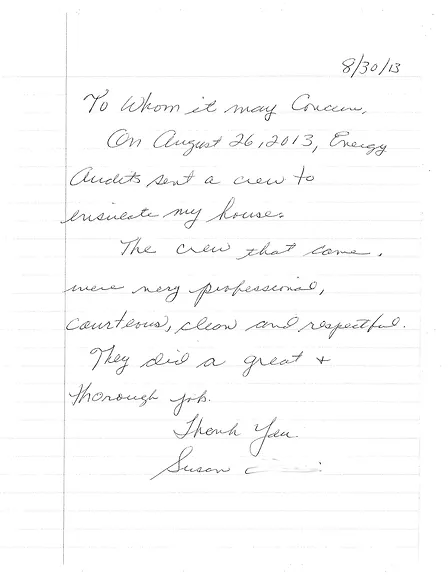 8/30/13
To Whom it may Concern,
On August 26, 2013, Energy
Audits sent a crew to
insulate my house.
The crew that came,
were very professional,
courteous, clean and respectful.
They did a great +
thorough job.
Thank You
Susan